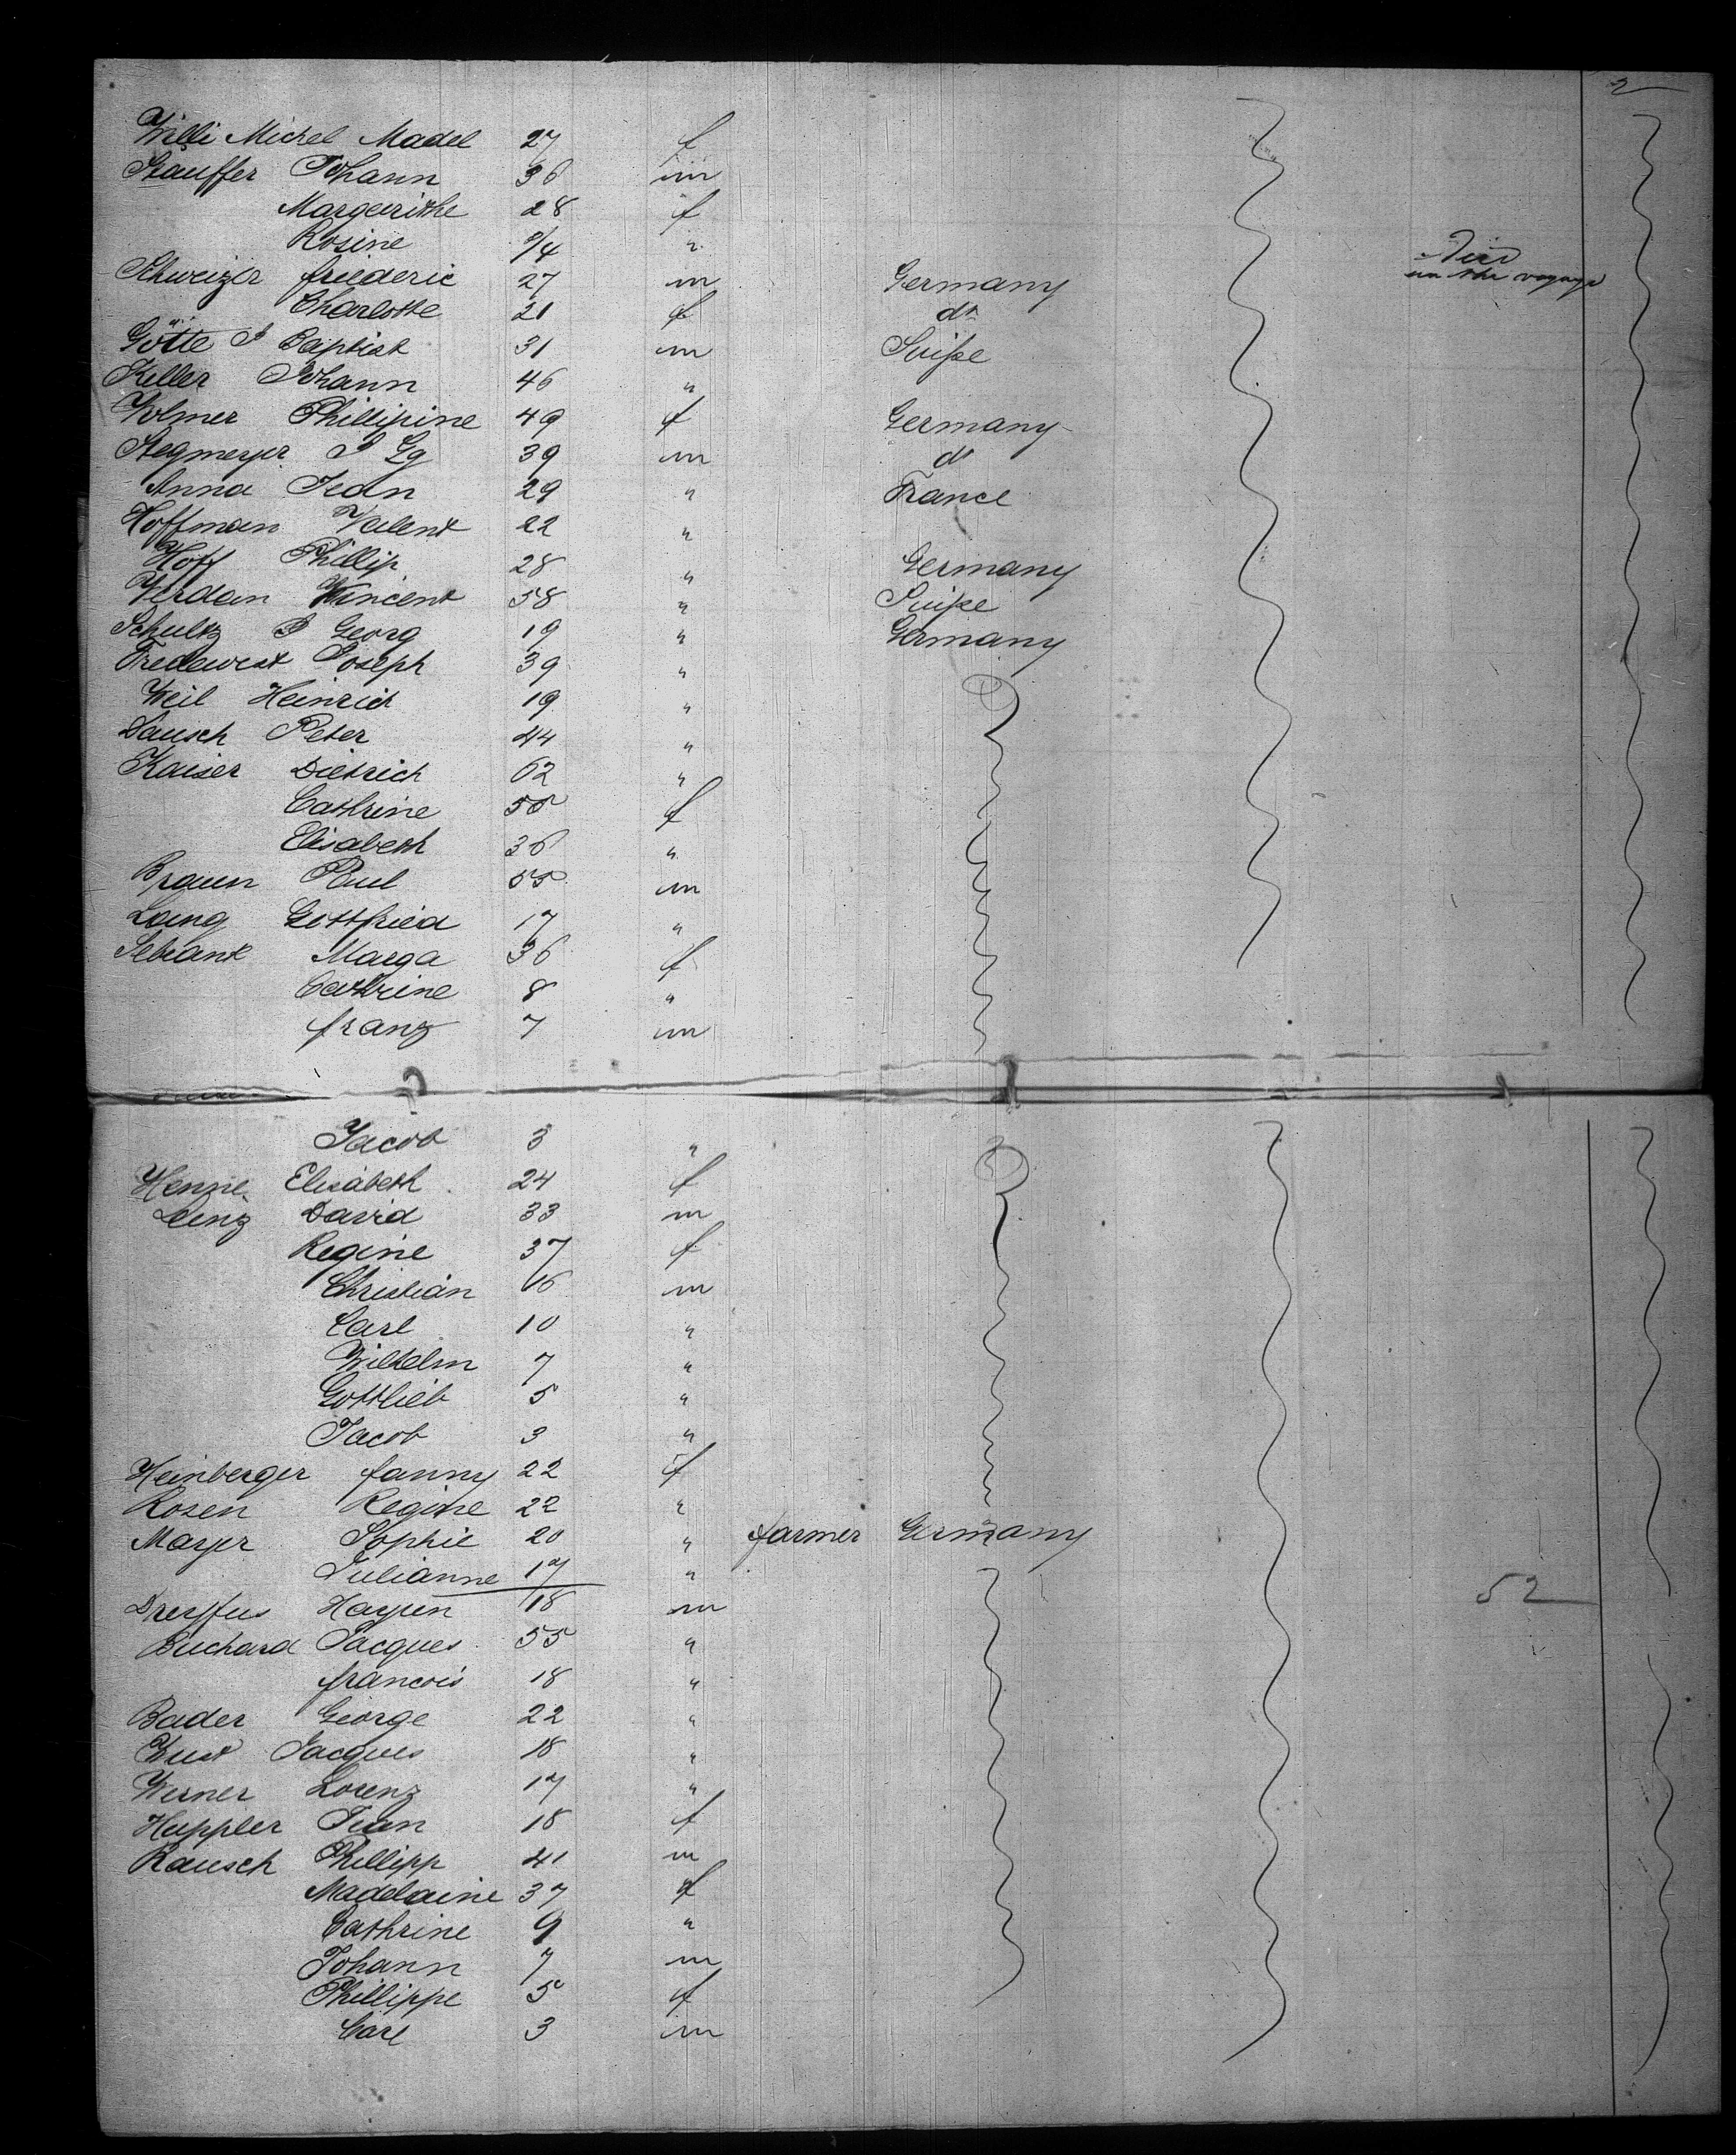 2
Willi Michel Madel 27 f
Stauffer Johann 36 m
Margarithe 28 f
Rosine /4 "
Died
on the voyage
Schweizer friederic 27 m Germany
Charlotte 21 f do
Götte J Baptist 31 m Suisse
Keller Johann 46 "
Volmer Phillipine 49 f Germany
Stegmeyer J Gg 39 m do
Anna Jean 29 " France
Hoffman Valent 22 "
Hoff Phillip 28 " Germany
Verdan Vincent 58 " Suisse
Schultz J Georg 19 " Germany
Tredewest Joseph 39 "
Weil Heinrich 19 "
Dausch Peter 44 "
Kaiser Dietrich 62 "
Cathrine 58 f
Elisabeth 36 "
Braun Paul 55 m
Lang Gottfried 17 "
Sebrant Marga 36 f
Cathrine 8 "
franz 7 m
Jacob 3 "
Elisabeth 24 f
Lenz David 33 m
Regine 37 f
Christian 16 m
Carl 10 "
Wilhelm 7 "
Gottlieb 5 "
Jacob 3 "
Heinberger fanny 22 f
Rosen Regine 22 "
Mayer Sophie 20 " farmer Germany
Julianne 17 "
52
Dreyffus Hayen 18 m
Buchard Jacques 55 "
francois 18 "
Bader George 22 "
Jacques 18 "
Werner Lorenz 17 "
Huppler Jean 18 f
Rausch Phillipp 41 m
Madelaine 37 f
Cathrine 9 "
Johann 7 m
Phillippe 5 f
Carl 3 m